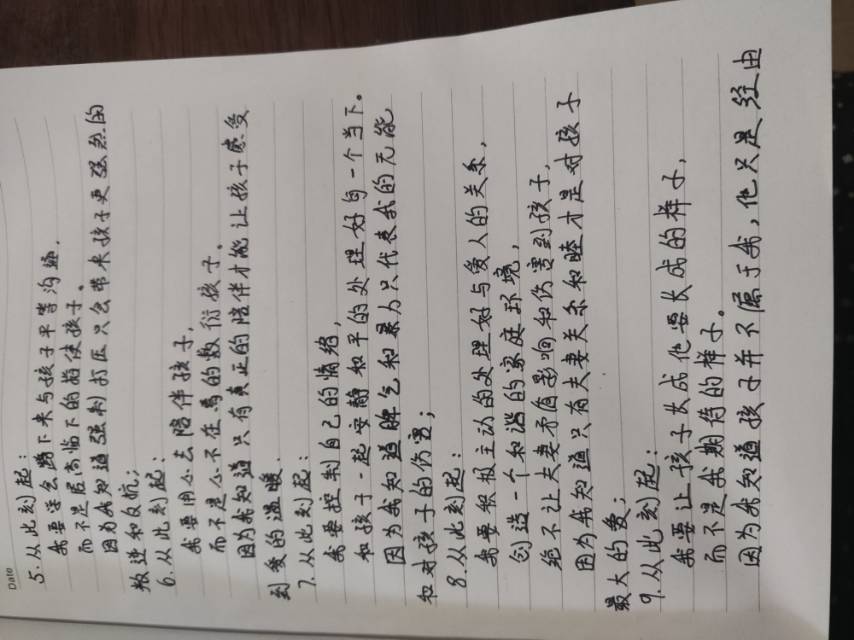 Date
5.从此刻起:
我要学会蹲下来与孩子平等沟通,
而不是居高临下的指使孩子。
因为我知道强制打压只会带来孩子更强烈的
叛逆和反抗;
6.从此刻起:
我要用心去陪伴孩子,
而不是心不在焉的敷衍孩子。
因为我知道只有真正的陪伴才能让孩子感受
到爱的温暖.
7.从此刻起:
我要控制自己的情绪,
和孩子一起安静和平的处理好每一个当下。
因为我知道脾气和暴力只代表我的无能
和对孩子的伤害;
8.从此刻起:
我要积极主动的处理好与爱人的关系,
创造一个和谐的家庭环境,
绝不让夫妻矛盾影响和伤害到孩子,
因为我知道只有夫妻关系和睦才是对孩子
最大的爱;
9.从此刻起:
我要让孩子长成他要长成的样子,
而不是我期待的样子。
因为我知道孩子并不属于我,他只是经由